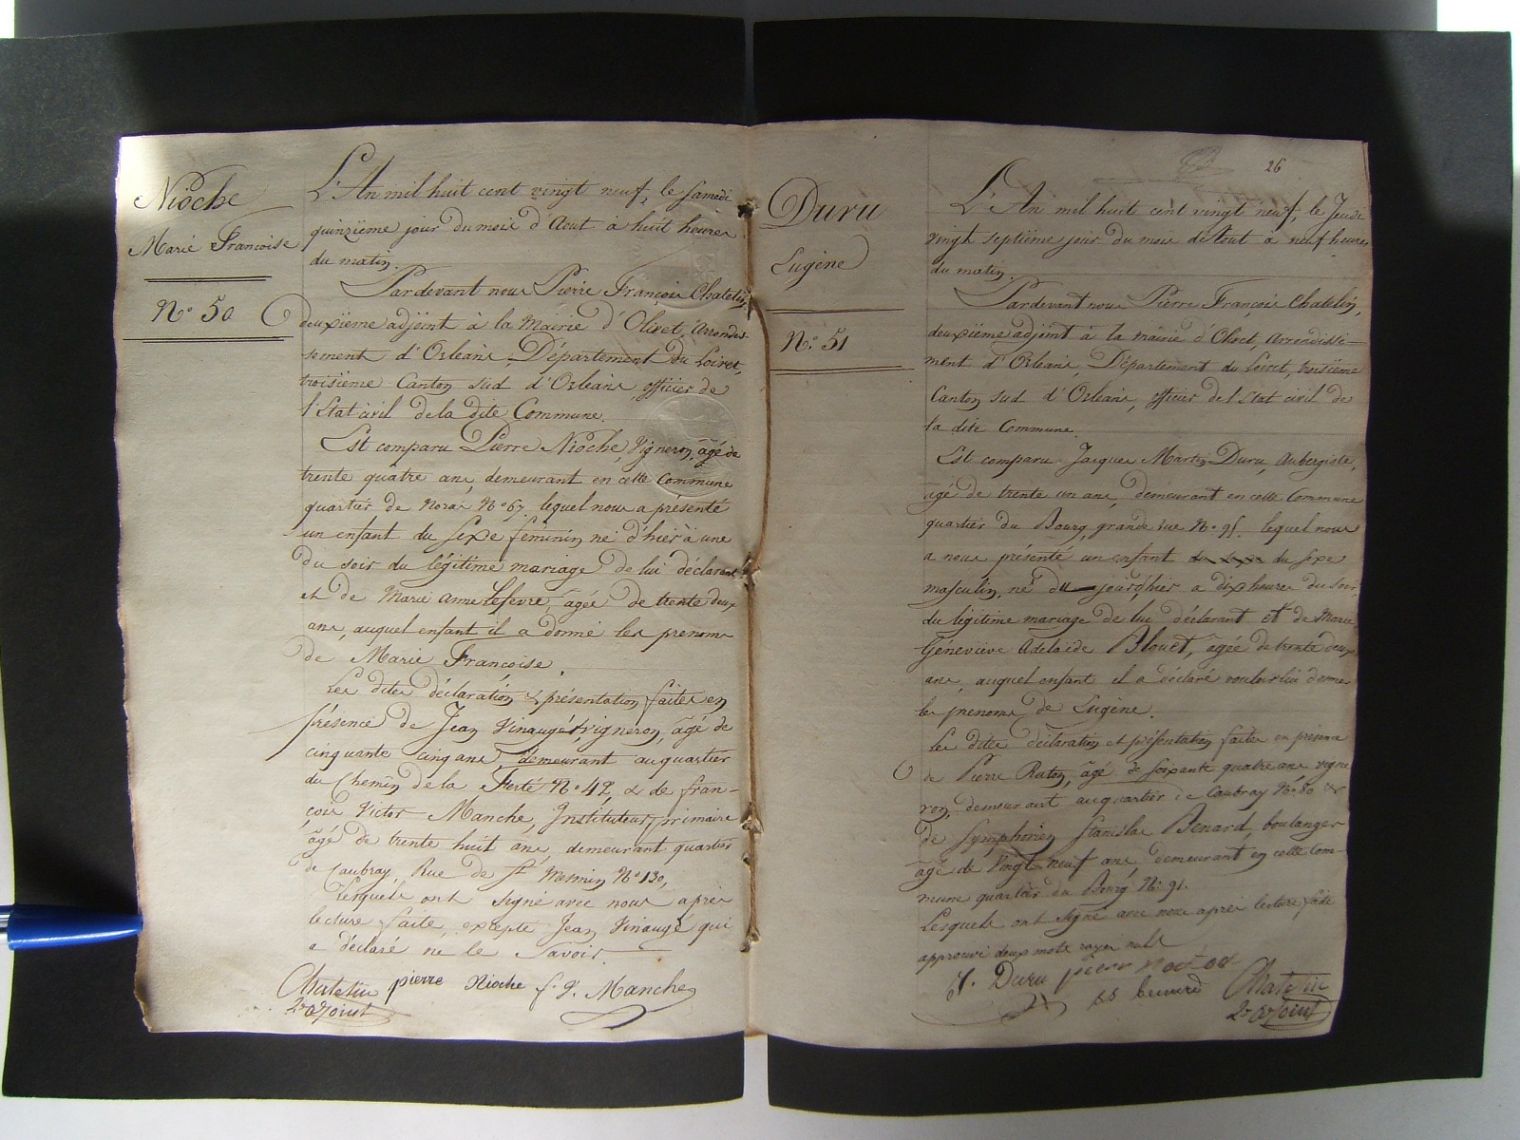 Nioche
Marie Françoise
N° 50
L'An mil huit cent vingt neuf, le Samedi
quinzième jour du mois d'Aout à huit heures
du matin.
Pardevant nous Pierre François Chatelin,
deuxième adjoint à la Mairie d'Olivet, arrondis-
sement d'Orleans, Département du Loiret,
troisième Canton Sud d'Orleans, officier de
l'Etat civil de la dite Commune.
Est comparu Pierre Nioche, Vigneron, âgé de
trente quatre ans, demeurant en cette Commune
quartier de N° 67. lequel nous a présenté
un enfant du Sexe féminin né d'hier à une
du soir du légitime mariage de lui déclarant
et de Marie Anne Lefevre, âgée de trente deux
ans, auquel enfant il a donné les prenoms
de Marie Françoise.
Les dites déclaration & présentation faites en
présence de Jean Vinauger, vigneron, âgé de
cinquante cinq ans demeurant au quartier
du Chemin de la Ferté N° 42 & de fran-
çois Victor Manche, Instituteur primaire
âgé de trente huit ans, demeurant quartier
de Caubray, Rue de St Mesmin N° 130,
Lesquels ont signé avec nous après
lecture faite, excepté Jean Vinaugé qui
a déclaré ne le Savoir.
Chatelin pierre Nioche f. V. Manche
2e adjoint
26
Duru
Eugène
N° 51
L'An mil huit cent vingt neuf, le Jeudi
vingt septième jour du mois d'Aout à neuf heures
du matin.
Pardevant nous Pierre François Chatelin,
deuxième adjoint à la mairie d'Olivet, arrondisse-
ment d'Orleans, Département du Loiret, troisième
Canton Sud d'Orleans, officier de l'Etat civil de
la dite Commune.
Est comparu Jacques Martin Duru, Aubergiste,
âgé de trente un ans, demeurant en cette Commune
quartier du Bourg, grande rue N° 95. lequel nous
a nous présenté un enfant du Sexe
masculin, né d'hier a dix heures du Soir
du légitime mariage de lui déclarant et de Marie
Géneviève Adelaide Blouet, âgée de trente deux
ans, auquel enfant il a déclaré vouloir lui donner
les prenoms de Eugène.
Les dites déclaration et présentation faites en présence
de Pierre Raton, âgé de soixante quatre ans vigne
ron, demeurant au quartier de Caubray N° 80 &
de Symphorien Stanislas Benard, boulanger
âgé de Vingt neuf ans demeurant en cette Com-
mune quartier du Bourg N° 91.
Lesquels ont signé avec nous après lecture faite
approuvé deux mots rayés nuls
J. Duru Chatelin
2e adjoint